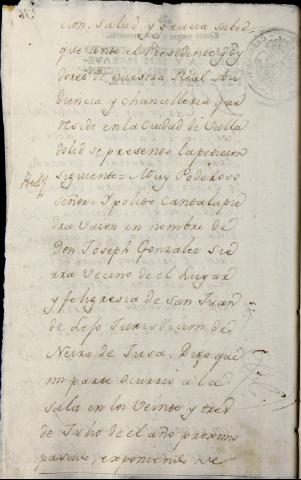 cion, salud y gracia sabed
que ante el Presidente y oy
dores de nuestra Real Au
diencia y chancilleria que
reside en la Ciudad de Valla
dolid se presento la peticion
siguiente = Muy Poderoso
señor = Ypolito Cantalapie
dra Varon en nombre de
Don Joseph Gonzalez Sie
rra Vecino de el Lugar
y feligresia de san Juan
de Jurisdicion de
Neira de Jusa. Digo que
mi parte ocurrio a la
sala en los Veinte y tres
de Julio de el año proximo
pasado, exponiendo